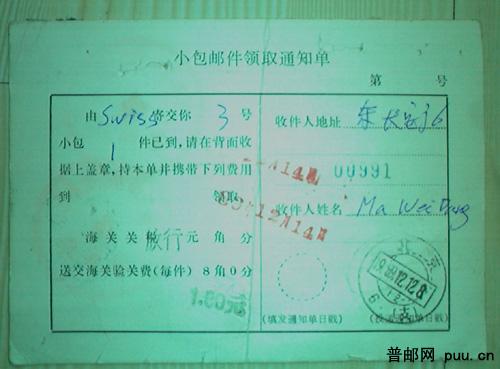 小包邮件领取通知单
第 号
由 Swiss 寄交你 3 号
小包 1 件已到，请在背面收
据上盖章，持本单并携带下列费用
到 领取
海关关税 放行 元 角 分
送交海关验关费（每件）8角0分
1.60元
收件人地址
00991
收件人姓名 Ma Wei Dong
北京
（填发通知单日戳）
普邮网 puu.cn